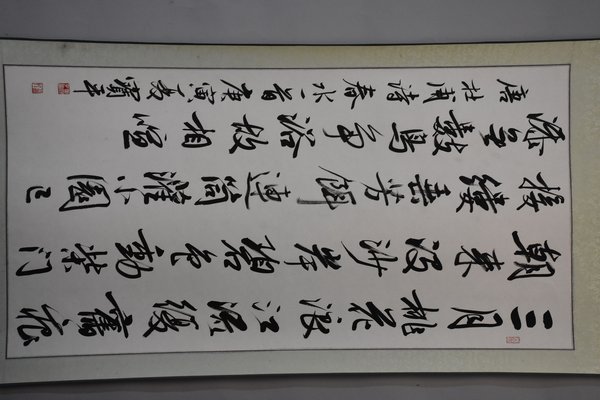 三月桃花浪江流復舊痕
朝来没沙尾碧色動柴门
接縷垂芳餌連筒灌小園已
添無數鳥爭浴故相喧
唐杜甫詩春水一首庚寅夏